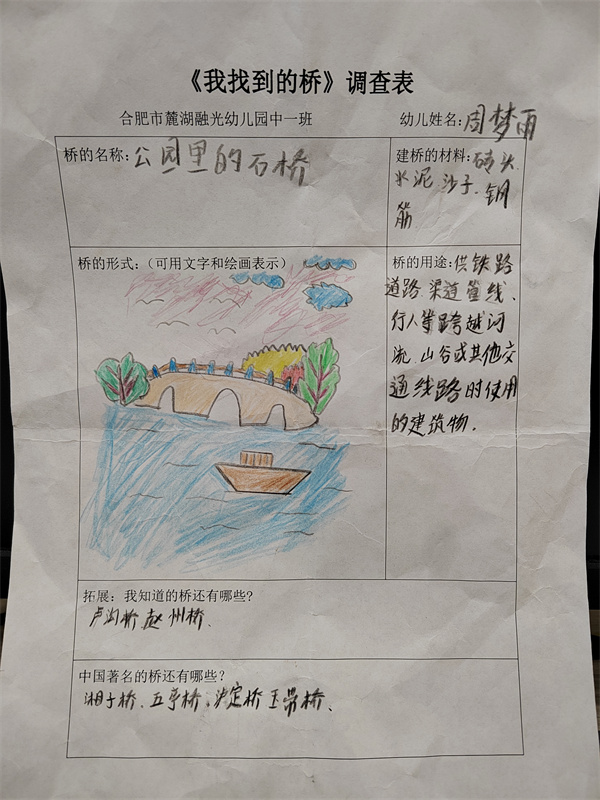 《我找到的桥》调查表
合肥市麓湖融光幼儿园中一班 幼儿姓名:周梦雨
桥的名称:公园里的石桥
建桥的材料:砖头
水泥.沙子.钢
筋
桥的形式:（可用文字和绘画表示）
桥的用途:供铁路
道路.渠道管线、
行人等跨越河
流.山谷或其他交
通线路时使用
的建筑物.
拓展：我知道的桥还有哪些?
卢沟桥.赵州桥.
中国著名的桥还有哪些？
湘子桥、五亭桥、泸定桥 玉带桥、